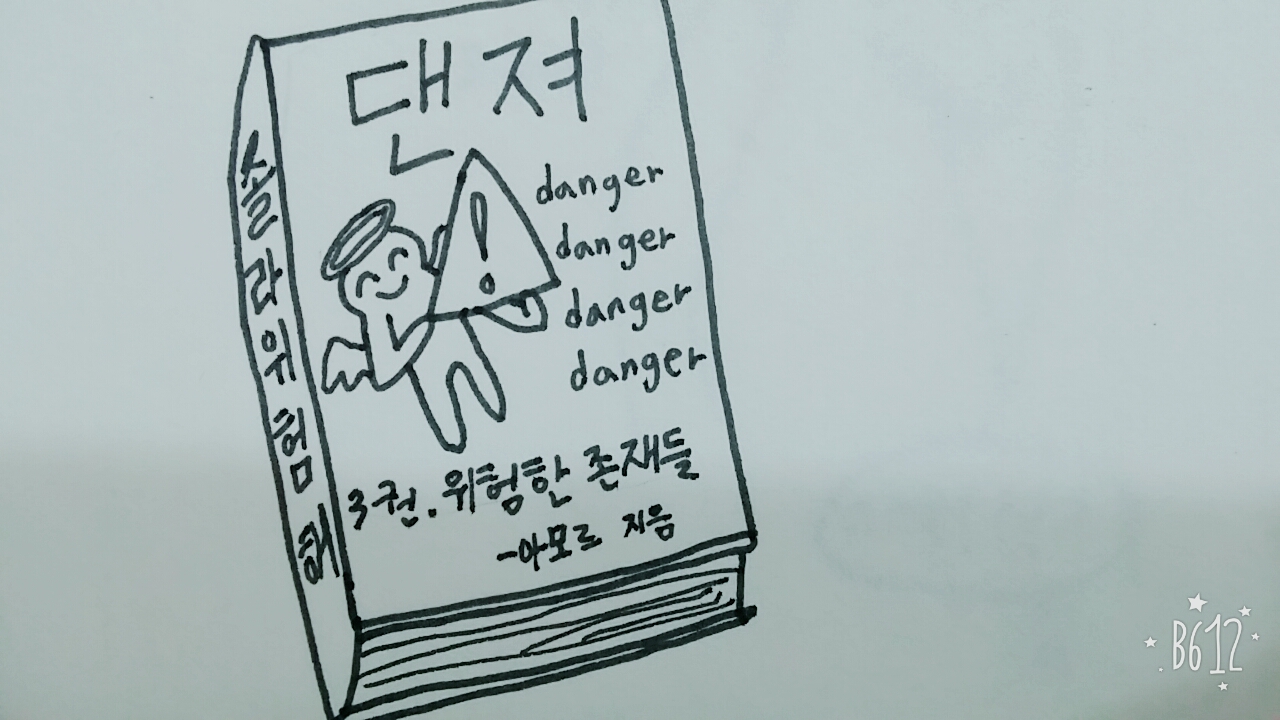 댄져
danger
danger
danger
danger
3권. 위험한 존재들
-아모르 지음
솔라위험해
B612